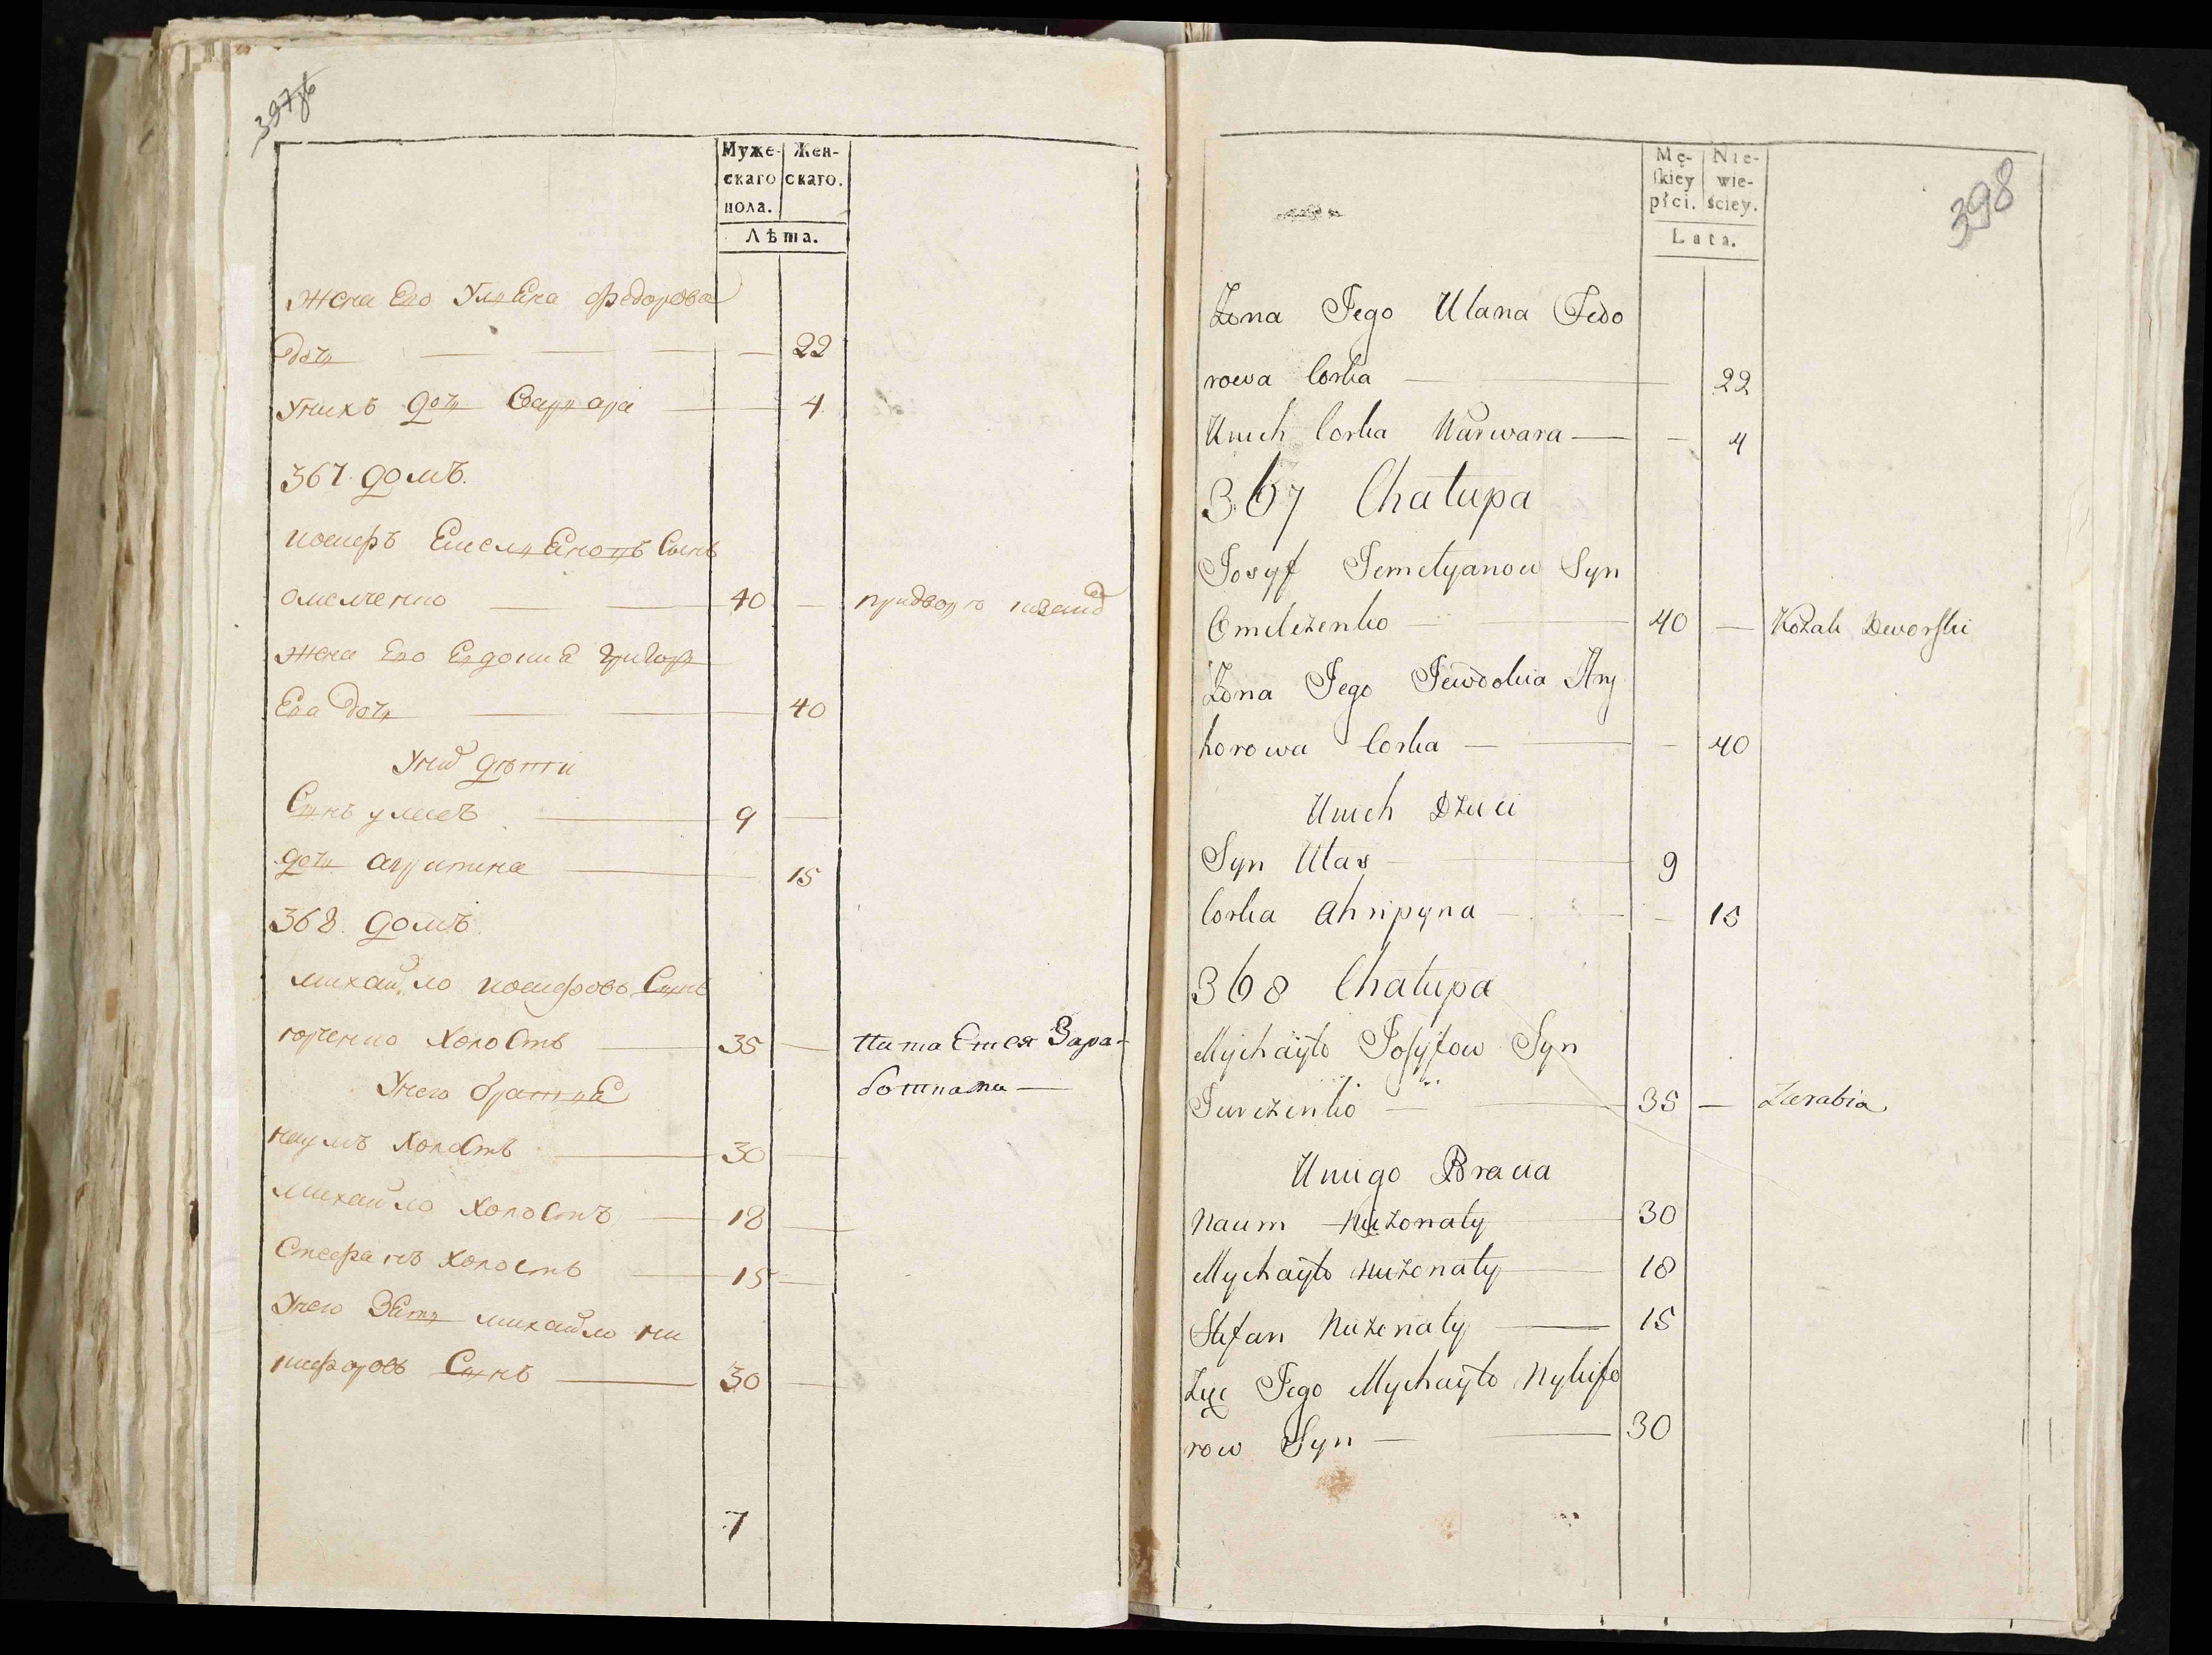 397об
Муже- Жен-
скаго скаго.
пола.
Лѣта.
жена Его Улияна федорова
дочь 22
Унихъ дочь Варвара 4
367 домъ.
иосифъ Емельяновъ Сынъ
омелченко 40 придворн козакъ
жена Его Евдокия григор
Ева дочь 40
Уних дѣти
Сынъ уласъ 9
дочь агрипина 15
368 домъ.
михайло иосифовъ Сынъ
юрченко Холостъ 35 питаЕтся Зара-
Унего братия ботками
наумъ Холостъ 30
михайло холостъ 18
Стефанъ холостъ 15
Унего Зять михайло ни
кифоровъ Сынъ 30
7
398
Mę- Nie-
skiey wie-
płci. ściey.
Lata.
Żona Jego Ulana Fedo
rowa Corka 22
Unich Corka Warwara 4
367 Chałupa
Josyf Jemelyanow Syn
Omelczenko 40 Kozak Dworski
Żona Jego Jewdokia Hry
horowa Corka 40
Unich Dzieci
Syn Ułas 9
Corka Ahripyna 15
368 Chałupa
Mychayło Josyfow Syn
Jurczenko 35 Zarabia
Uniego Bracia
Naum Nieżonaty 30
Mychayło Nieżonaty 18
Stefan Nieżonaty 15
Zięć Jego Mychayło Nykifo
row Syn 30